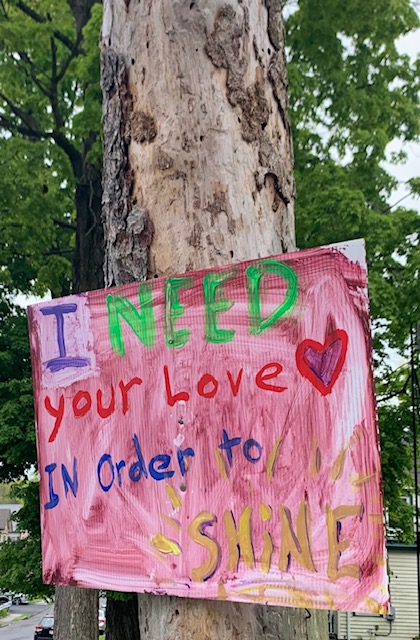 I NEED
your Love
IN Order to
SHiNE